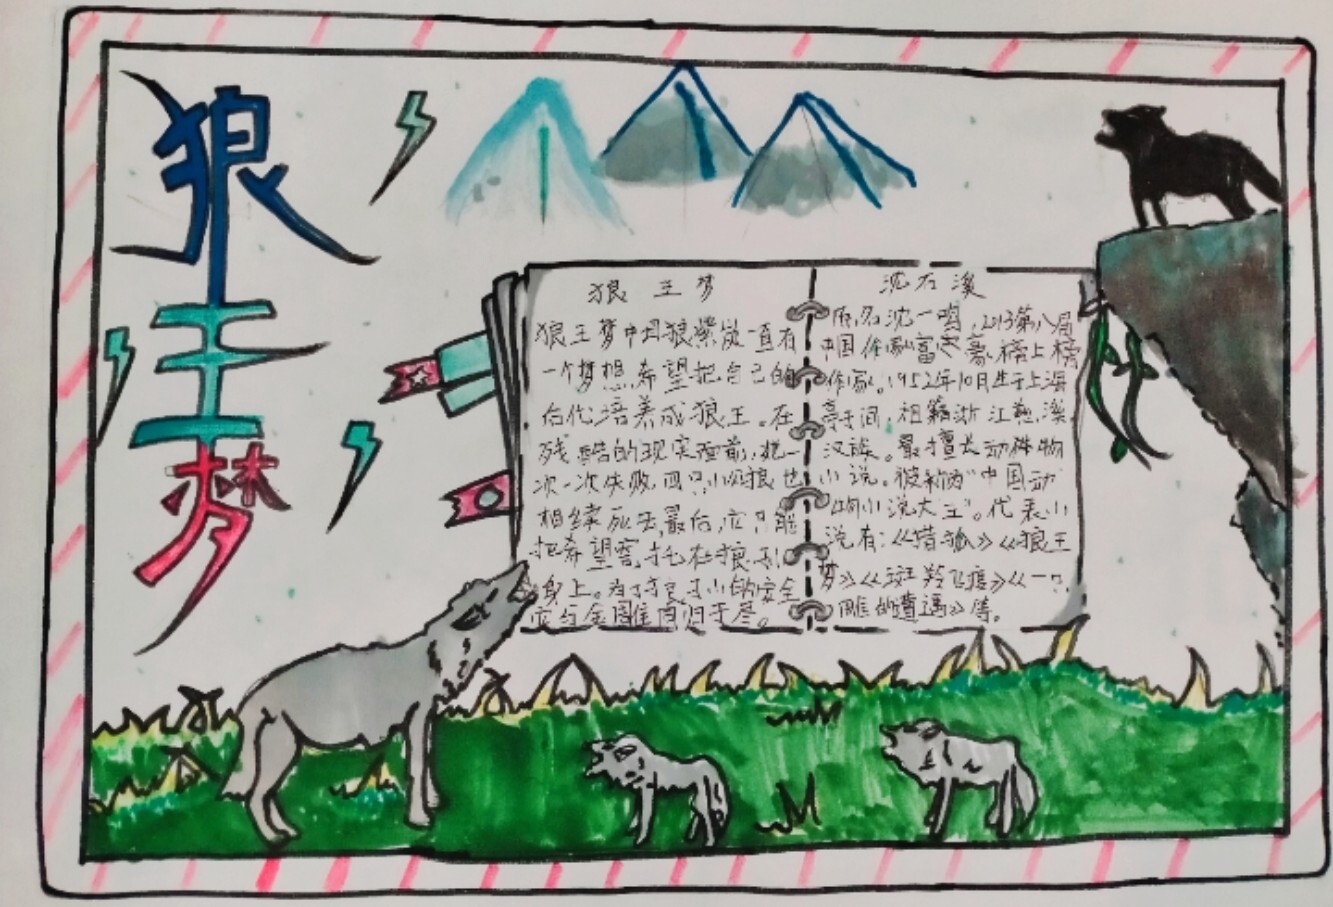 狼王梦
狼王梦
狼王梦中母狼紫岚一直有
一个梦想,希望把自己的
后代培养成狼王。在
残酷的现实面前,她一
次一次失败,四只小狼也
相续死去,最后,它只能
把希望寄托在狼孙
身上。为了狼孙的安全
它与金雕同归于尽。
沈石溪
原名沈一鸣,2013第八届
中国作家富豪榜上榜
作家。1952年10月生于上海
亭子间,祖籍浙江慈溪
汉族。最擅长动物
小说。被称为“中国动
物小说大王”。代表小
说有:《猎狐》《狼王
梦》《斑羚飞渡》《一只
雕的遭遇》等。